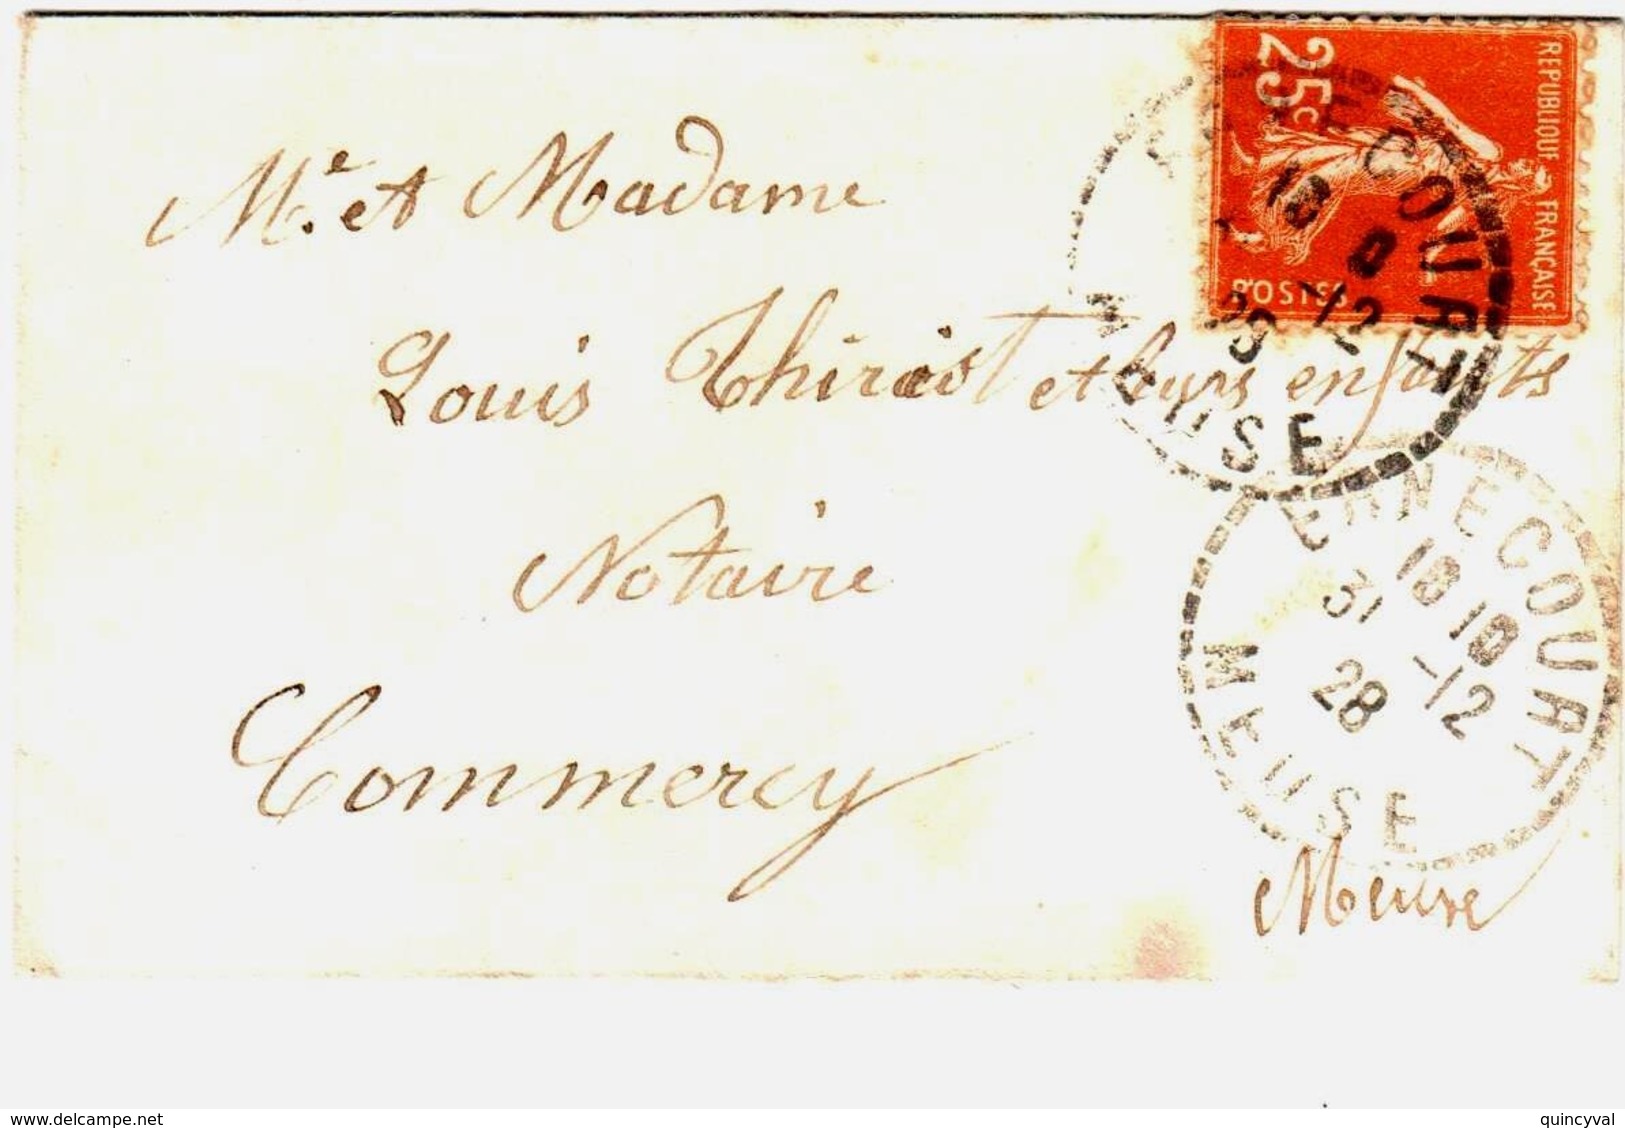 RÉPUBLIQUE FRANÇAISE
25c
POSTES
ECOURT
18
-12
MEUSE
Me. et Madame
Louis et leurs enfants
Notaire
Commercy
Meuse
ERNECOURT
18 10
31 -12
28
MEUSE
www.delcampe.net
quincyval